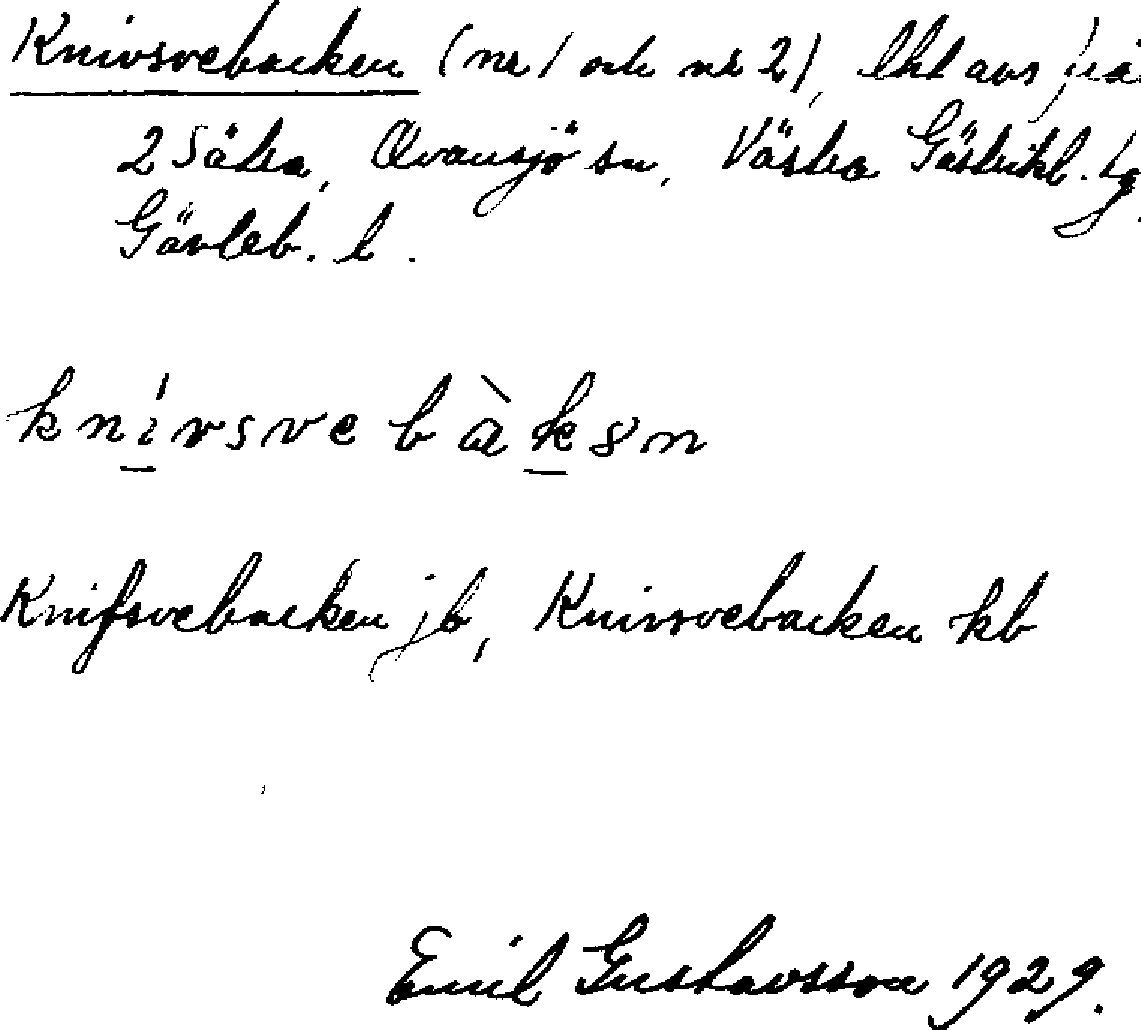 Knivsvebacken (nr 1 och nr 2), lht avs från
2 Sätra, Ovansjö sn, Västra Gästrikl. tg.
Gävleb. l.
knivsvebàkən
Knifsvebacken jb, Knivsvebacken kb
Emil Gustavsson 1929.